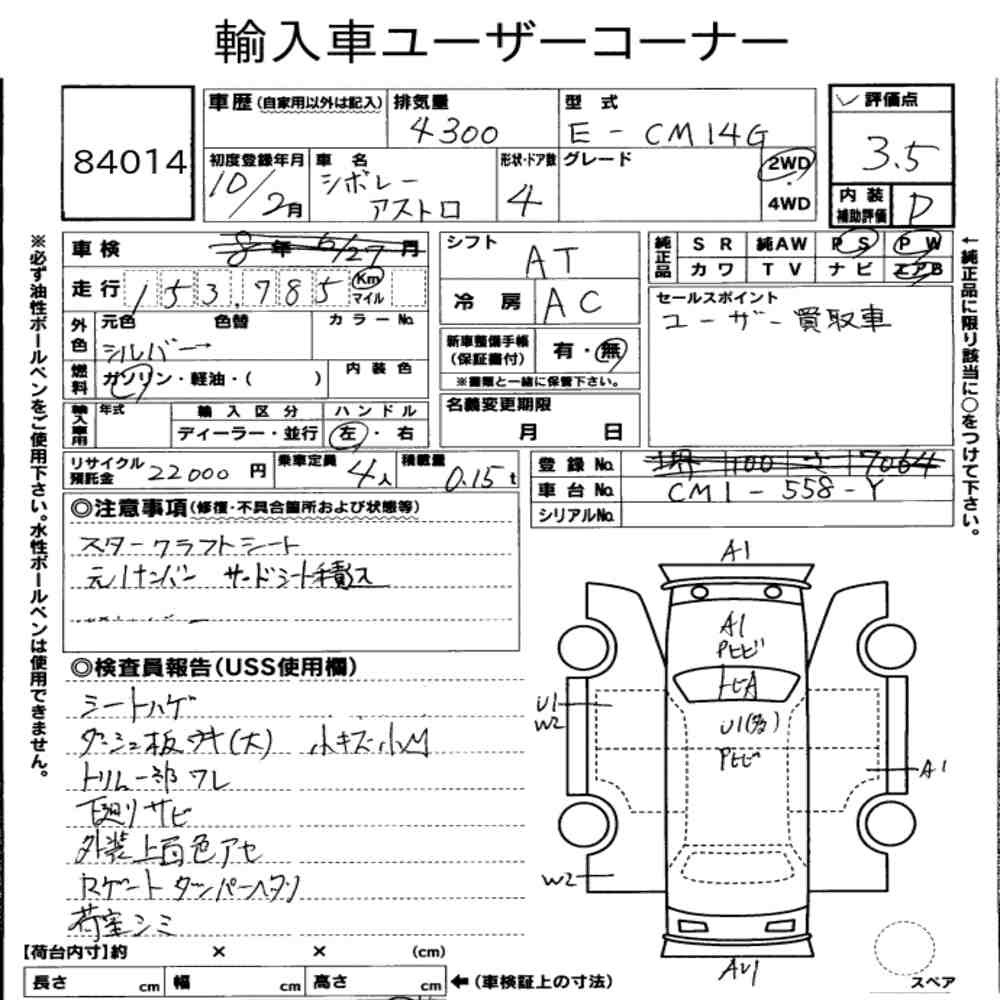 輸入車ユーザーコーナー
84014
車歴(自家用以外は記入) 排気量 4300 型式 E-CM14G
評価点 3.5
初度登録年月 10/2月 車名 シボレー アストロ 形状・ドア数 4 グレード 2WD 4WD
内装補助評価 D
車検 8年6/27月
走行 153,785 Km マイル
外色 元色 シルバー 色替 カラーNo.
燃料 ガソリン・軽油・( ) 内装色
輸入車用 年式 輸入区分 ディーラー・並行 ハンドル 左・右
シフト AT
冷房 AC
新車整備手帳(保証書付) 有・無
※書類と一緒に保管下さい。
名義変更期限 月 日
純正品 SR 純AW PS PW
カワ TV ナビ エアB
セールスポイント
ユーザー買取車
リサイクル預託金 22000円 乗車定員 4人 積載量 0.15t
登録No. 堺 100 さ 17064
車台No. CM1-558-Y
シリアルNo.
◎注意事項(修復・不具合箇所および状態等)
スタークラフトシート
元1ナンバー サードシート積込
◎検査員報告(USS使用欄)
シートハゲ
ダッシュ板ウキ(大) 小キズ小凹
トリム一部ワレ
下廻りサビ
外装上面色アセ
Rゲートダンパーヘタリ
荷室シミ
A1
A1
Pヒビ
トビA
U1(多)
Pヒビ
U1
W2
A1
W2
AU1
スペア
【荷台内寸】約 × × (cm)
長さ cm 幅 cm 高さ cm ←(車検証上の寸法)
※必ず油性ボールペンをご使用下さい。水性ボールペンは使用できません。
←純正品に限り該当に○をつけて下さい。